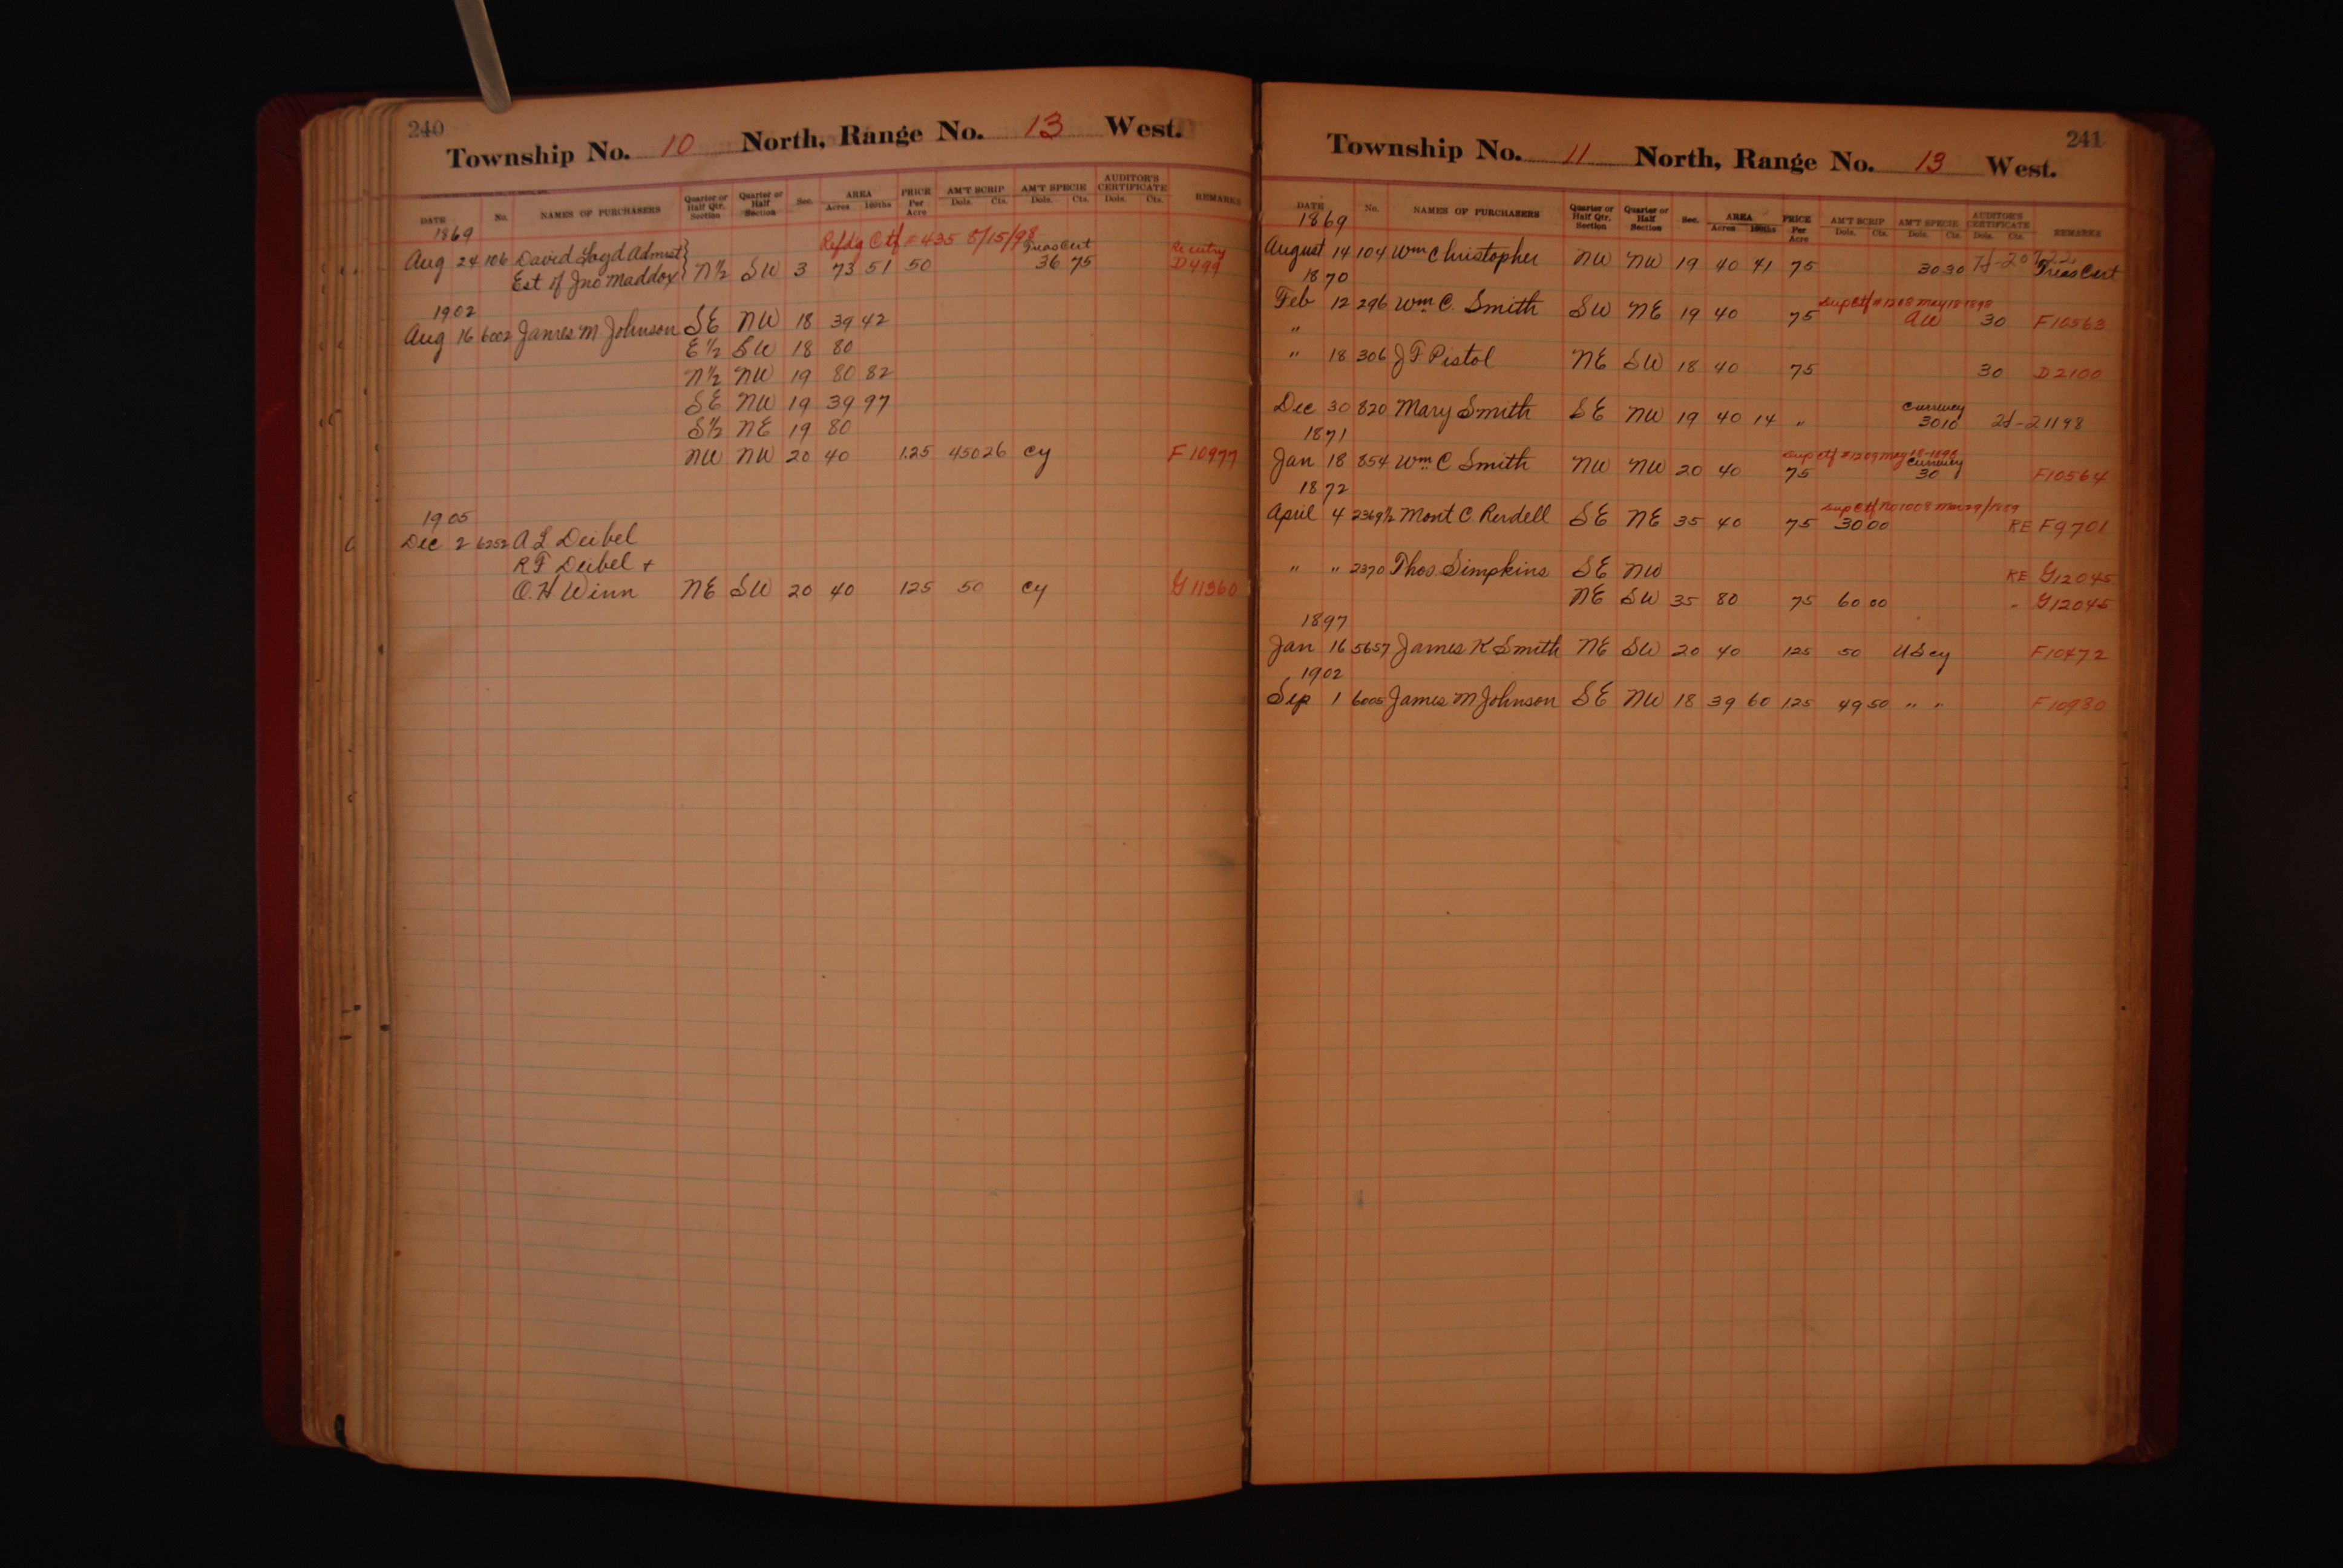 240
Township No. 10 North, Range No. 13 West.
DATE No. NAMES OF PURCHASERS Quarter or Half Qtr. Section Quarter or Half Section Sec. AREA Acres 100ths PRICE Per Acre AM'T SCRIP Dols. Cts. AM'T SPECIE Dols. Cts. AUDITOR'S CERTIFICATE Dols. Cts. REMARKS
1869
Refdg Ctf # 435 8/15/98
Aug 24 106 David Loyd Admst Treas Cert Re entry
Est of Jno Maddox N½ SW 3 73 51 50 36 75 D499
1902
Aug 16 6002 James M. Johnson SE NW 18 39 42
E½ SW 18 80
N½ NW 19 80 82
SE NW 19 39 97
S½ NE 19 80
NW NW 20 40 1.25 450 26 cy F10977
1905
Dec 2 6252 A L Deibel
R F Deibel +
O. H Winn NE SW 20 40 125 50 cy G11360
241
Township No. 11 North, Range No. 13 West.
DATE No. NAMES OF PURCHASERS Quarter or Half Qtr. Section Quarter or Half Section Sec. AREA Acres 100ths PRICE Per Acre AM'T SCRIP Dols. Cts. AM'T SPECIE Dols. Cts. AUDITOR'S CERTIFICATE Dols. Cts. REMARKS
1869
August 14 104 Wm Christopher NW NW 19 40 41 75 30 30 Treas Cert
1870
Sup Ctf # 1208 May 18 1898
Feb 12 296 Wm C. Smith SW NE 19 40 75 AW 30 F10563
"
" 18 306 J F Pistol NE SW 18 40 75 30 D2100
Currency
Dec 30 820 Mary Smith SE NW 19 40 14 " 30 10 2d-21198
1871
Sup Ctf # 1209 May 18-1898
Currency
Jan 18 854 Wm C Smith NW NW 20 40 75 30 F10564
1872
Sup Ctf No 1008 Mar 29/1889
April 4 2369½ Mont C. Rendell SE NE 35 40 75 30 00 RE F9701
" " 2370 Thos. Simpkins SE NW RE G12045
NE SW 35 80 75 60 00 " G12045
1897
Jan 16 5657 James K Smith NE SW 20 40 125 50 US cy F10472
1902
Sep 1 6005 James M Johnson SE NW 18 39 60 125 49 50 " " F10980